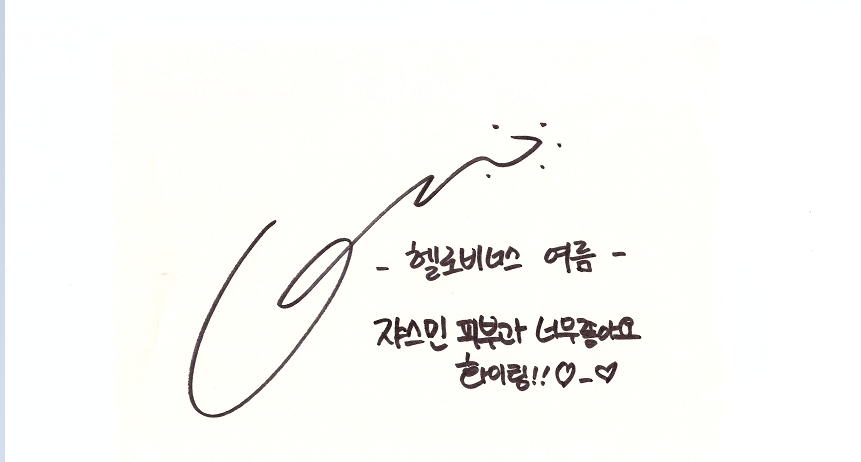 - 헬로비너스 여름 -
쟈스민 피부과 너무좋아요
화이링!! ♡_♡